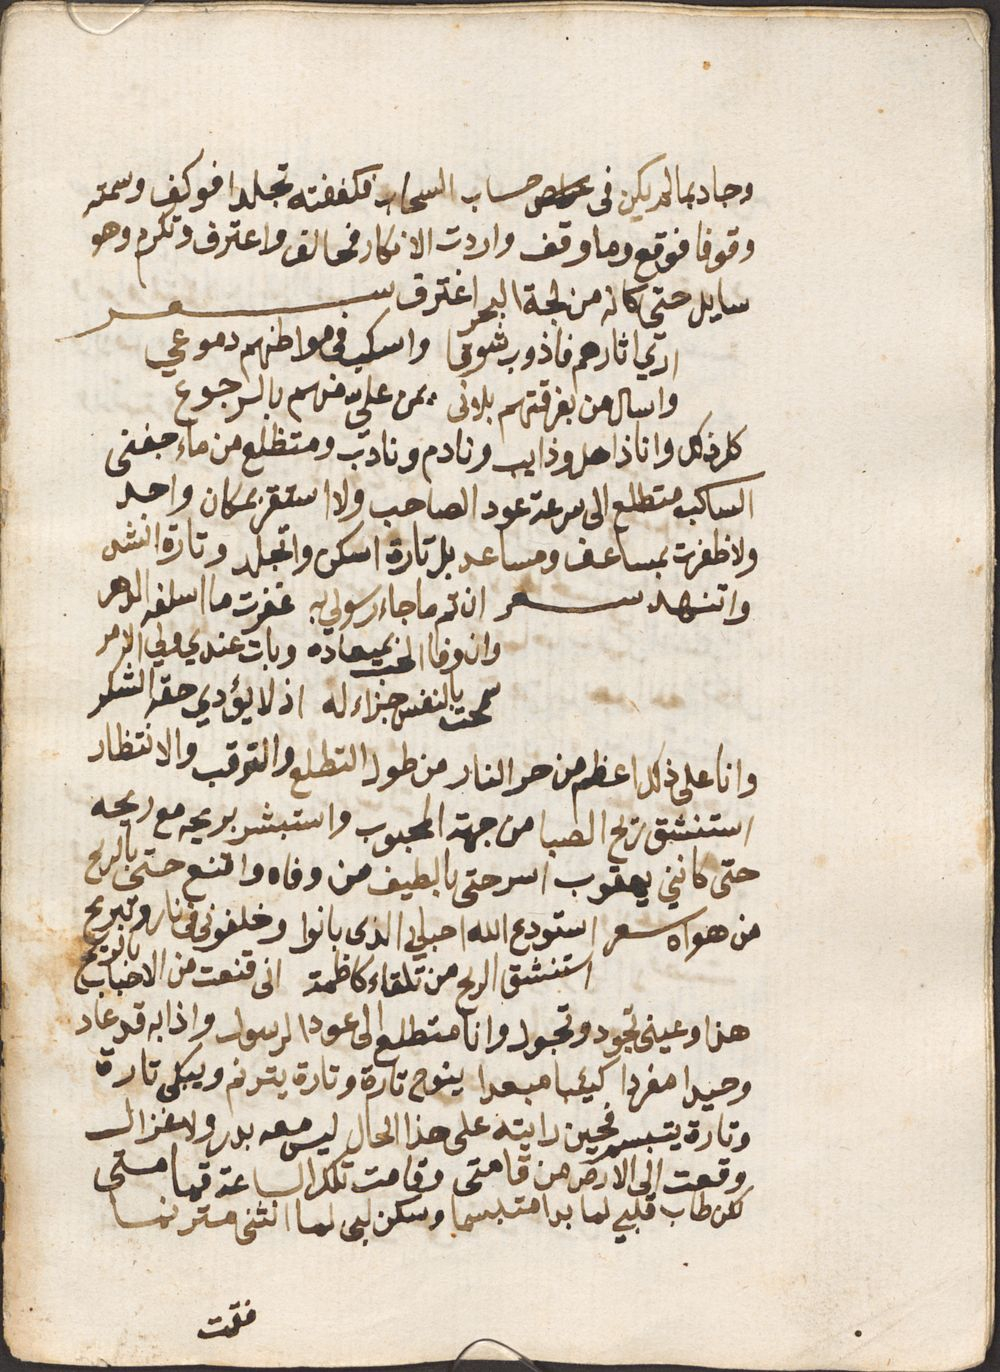 وجاد بمالم يكن فى حساب السحاب فكففته تجلدا فوكف وسمته
وقوفا فوقع وما وقف واردت الانكار فخالف واعترف وتكرم وهو
سايل حتى كانه من لجة البحر اغترف شعر
اري اثارهم فاذوب شوقا واسكب فى مواطنهم دموعي
واسال من بفرقتهم بلانى يمن على منهم بالرجوع
كل ذلك وانا ذاهل وذايب ونادم ونادب ومتظلع من ماء جفنى
الساكب متطلع الى سرعة عود الصاحب ولا استقر بمكان واحد
ولا ظفرت بمساعف ومساعد بل تارة اسكن واتجلد وتارة انشد
واتنهد شعر ان تم ما جاء رسولي به غفرت ما اسلفه الدهر
وان وفا الحب بميعاده وبات عندي ولي الامر
سمحت بالنفس جزاء له اذ لا يؤدي حقه الشكر
وانا على ذلك اعظم من حر النار من طول التطلع والترقب والانتظار
استنشق ريح الصبا من جهة المحبوب واستبشر بريحه مع ريحه
حتى كانني يعقوب اسر حتى بالطيف من وفاه واقنع حتى بالريح
من هواه شعر استودع الله احبابي الذى بانوا وخلفونى فى نار وتبريح
استنشق الريح من تلقاء كاظمة انى قنعت من الاحباب بالريح
هذا وعينى تجود وتجول وانا متطلع الى عود الرسول واذا به قد عاد
وحيدا مفردا كئيبا مبعدا ينوح تارة وتارة يترنم ويبكى تارة
وتارة يتبسم فحين رايته على هذا الحال ليس معه بدر ولا غزال
وقعت الى الارض من قامتى وقامت تلك الساعة قيامتى
لكن طاب قلبي لما بدا متبسما وسكن لبى لما انثنى مترنما
فقلت